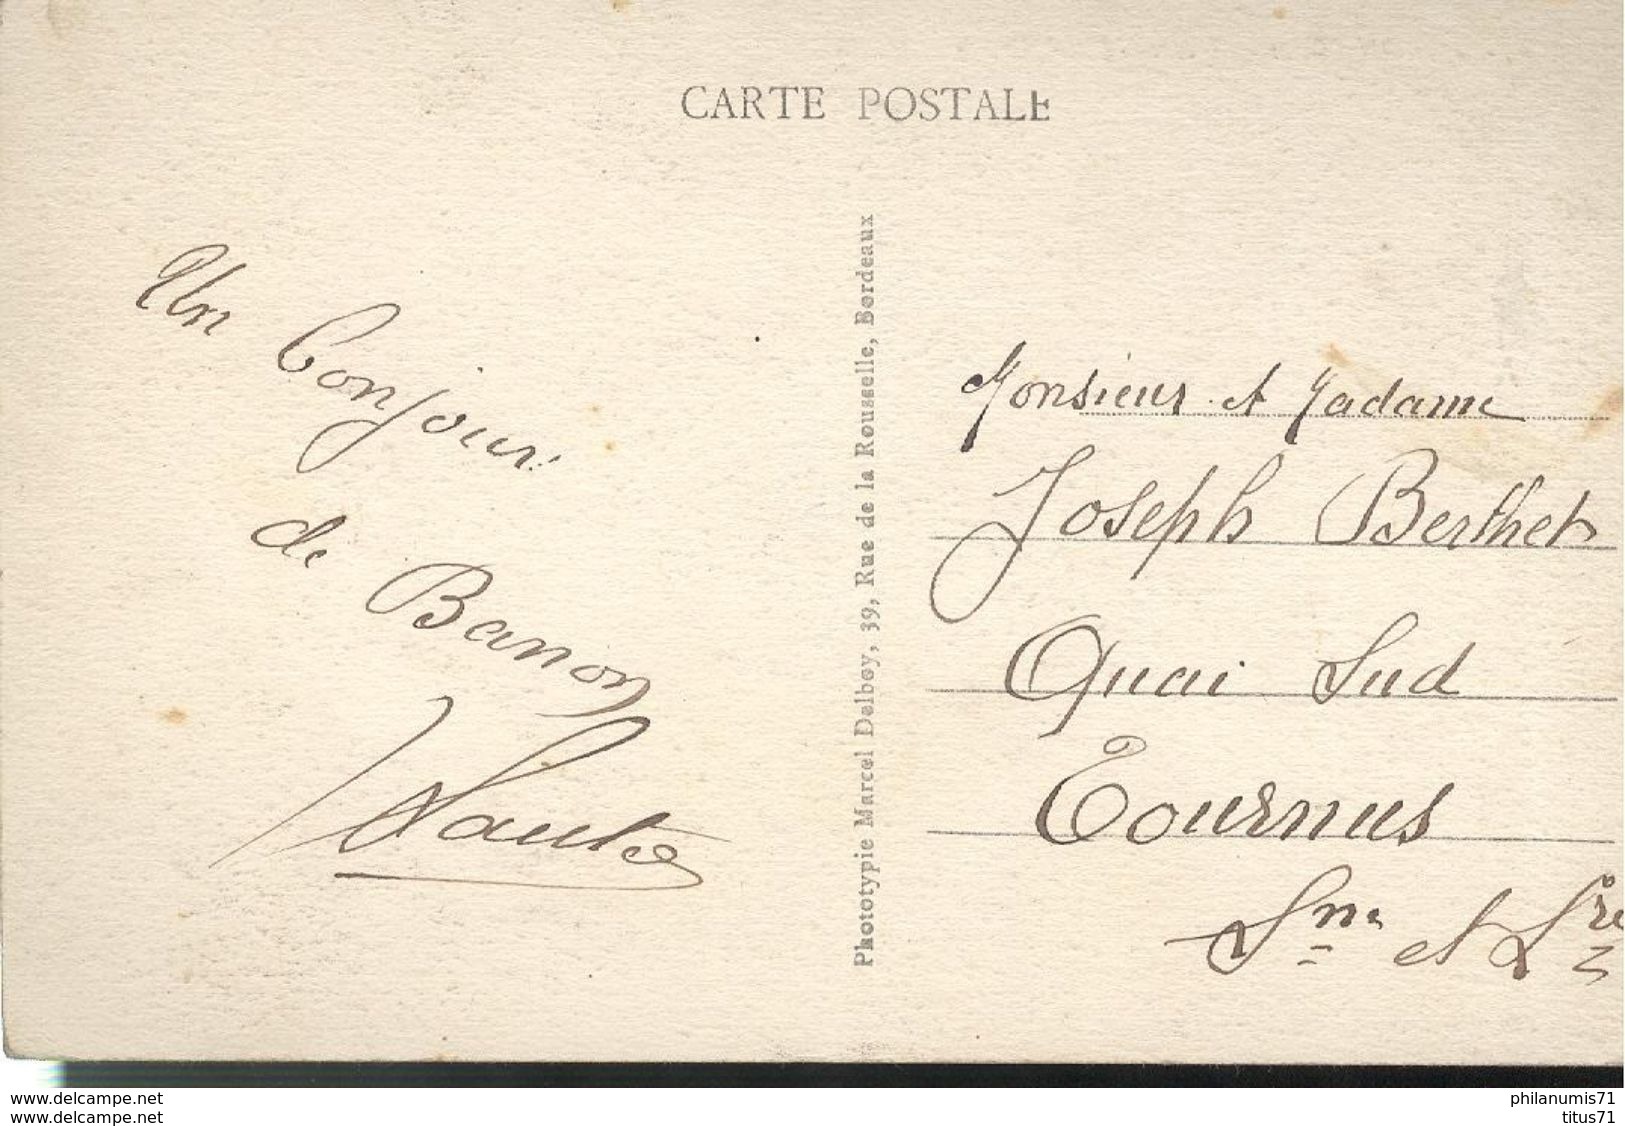 CARTE POSTALE
Un bonjour
de Banon
Phototypie Marcel Delboy, 39, Rue de la Rousselle, Bordeaux
Monsieur et Madame
Joseph Berthet
Quai Sud
Tournus
Sne et Lre
www.delcampe.net
www.delcampe.net
philanumis71
titus71